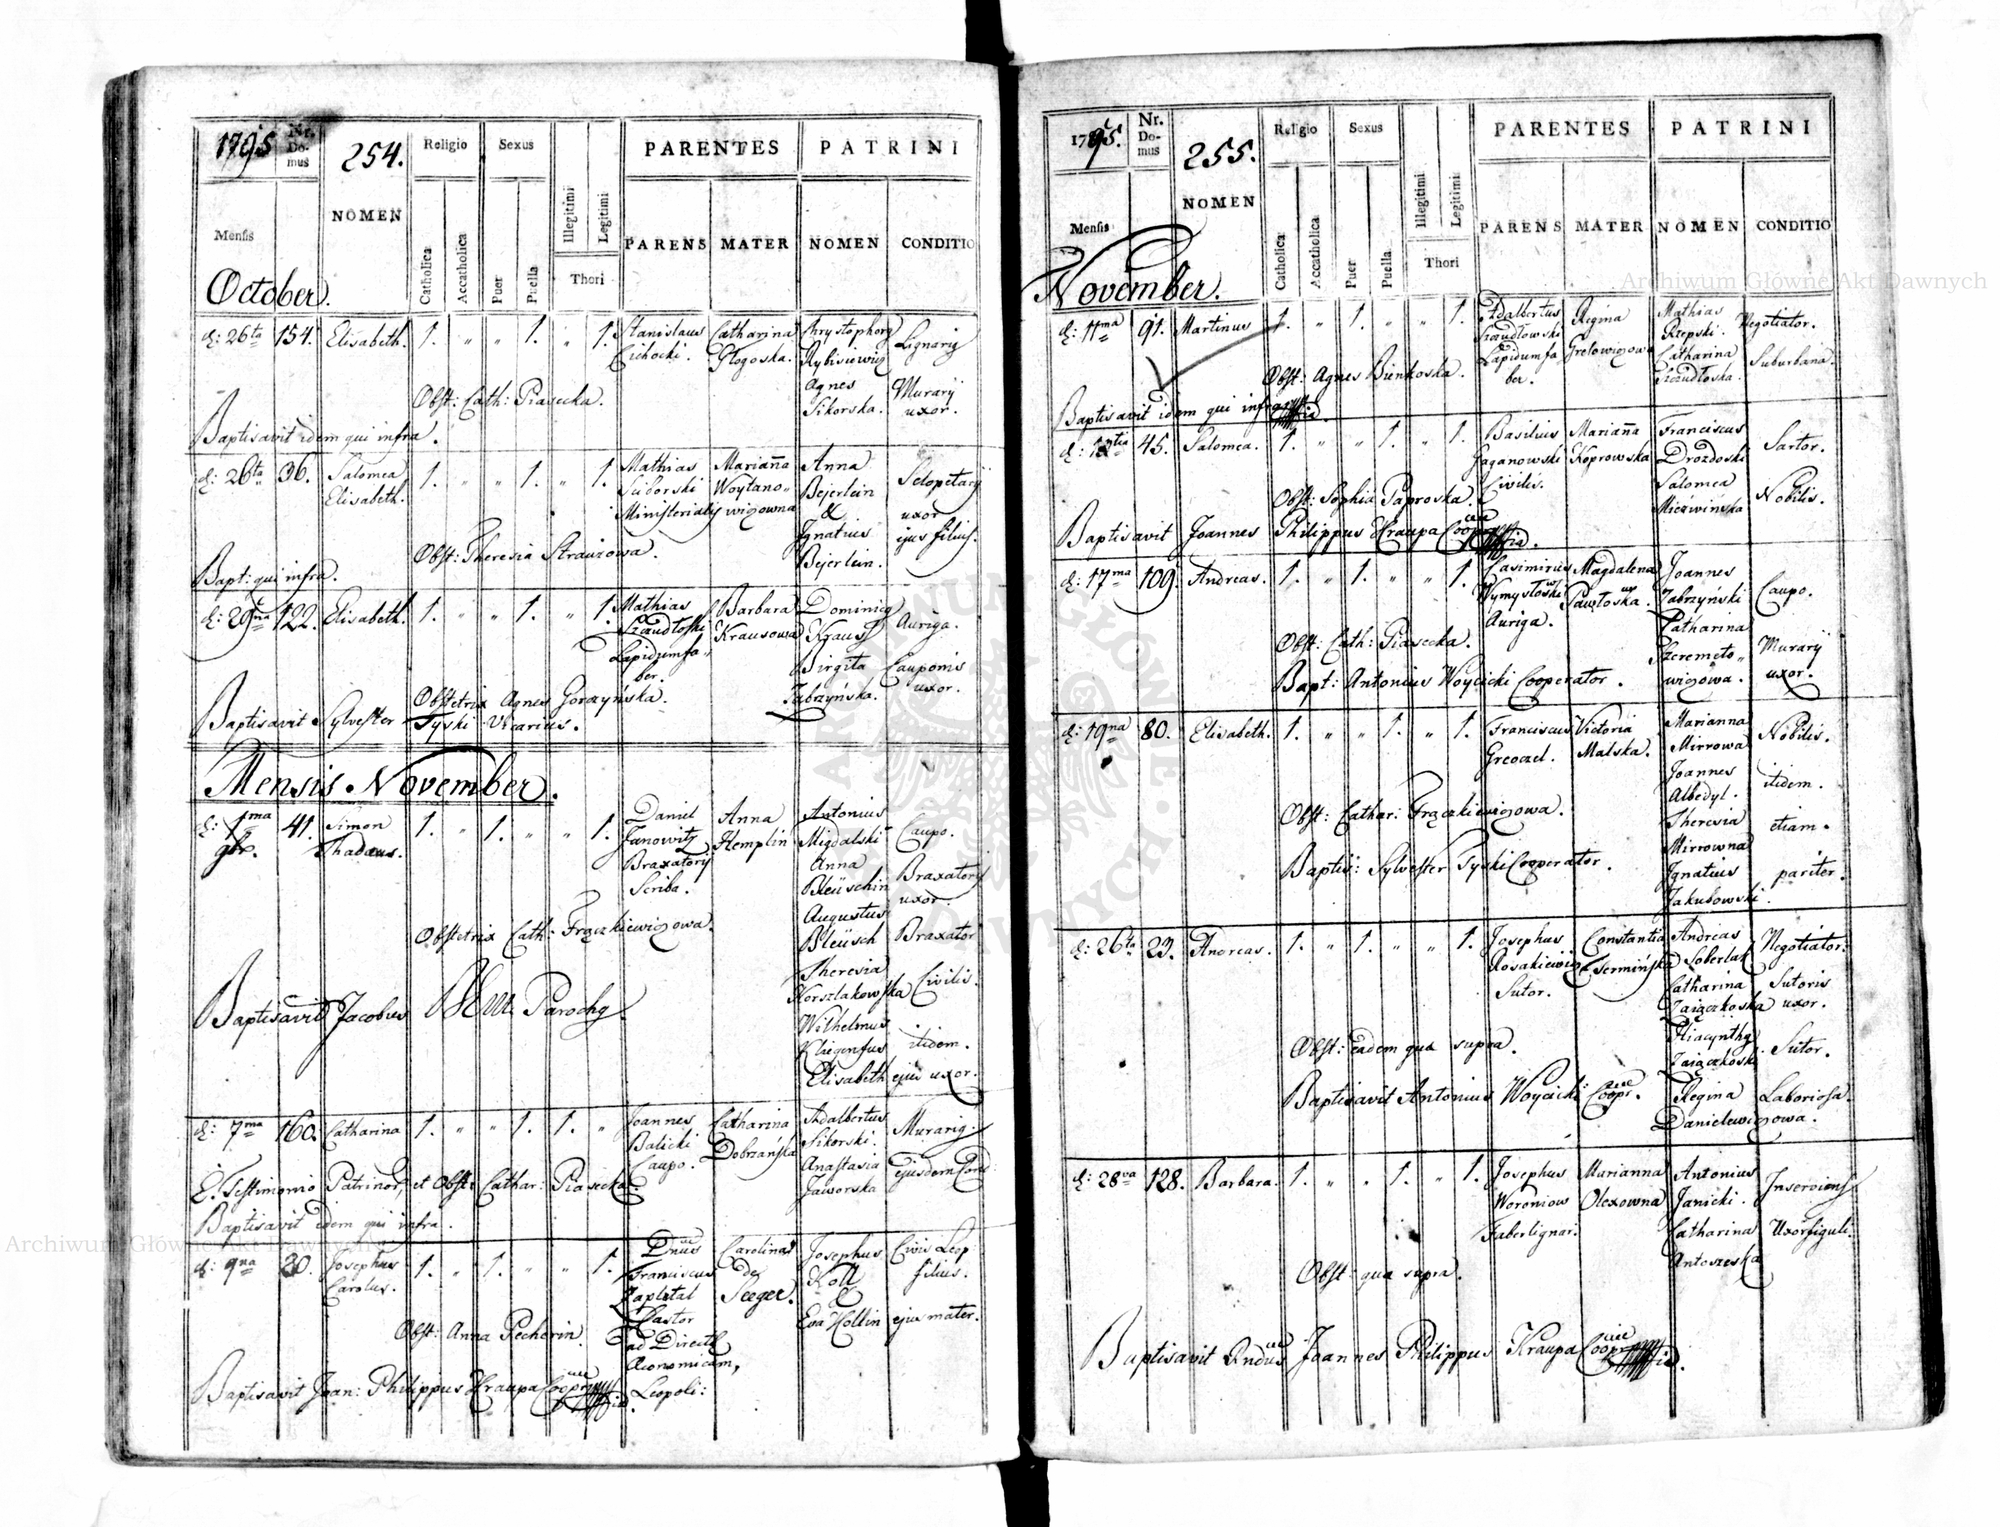 1795
Nr. Domus
254.
Religio
Sexus
PARENTES
PATRINI
Mensis
NOMEN
Catholica
Accatholica
Puer
Puella
Illegitimi
Legitimi
Thori
PARENS
MATER
NOMEN
CONDITIO
October.
d: 26ta 154. Elisabeth. 1. " " 1. " 1. Stanislaus Catharina
Cichocki. Głogoska.
Lignarii
Agnes Murarij
Sikorska. uxor.
Obst: Cath: Piasecka.
Baptisavit idem qui infra.
d: 26ta 36. Salomea 1. " " 1. " 1. Mathias Marianna Anna
Elisabeth. Seiborski Woytano- Bejerlein Sclopetarij
Ministerialis wiczowna & uxor
Ignatius ejus filius.
Bejerlein.
Obst: Theresia Strauzowa.
Bapt: qui infra.
d: 29na 122. Elisabeth. 1. " " 1. " 1. Mathias Barbara Dominicq
Krausowa Kraus Auriga.
Lapidumfa- Birgita Cauponis
ber. Zabrzyńska. uxor.
Obstetrix Agnes Gorzyńska.
Baptisavit Sylvester Tyski Vicarius.
Mensis November.
d: 1ma 41. Simon 1. " 1. " " 1. Daniel Anna Antonius
9br. Thadæus. Janowitz Hemplin Migdalski Caupo.
Braxatorij Anna Braxatorij
Scriba. Bleüschin uxor.
Augustus
Bleüsch Braxator
Obstetrix Cath: Frączkiewiczowa.
Theresia
Korszlakowska Civilis.
Baptisavit Jacobus Parochq.
Wilhelmus
itidem.
Elisabeth ejus uxor.
d: 7ma 160. Catharina 1. " " 1. 1. " Joannes Catharina Adalbertus
Balicki Dobrzańska Sikorski. Murariq.
Caupo. Anastasia ejusdem Cond:
Jaworska
E. Testimonio Patrinor, et Obst: Cathar: Piasecka.
Baptisavit idem qui infra.
d: 9na 20. Josephus 1. " 1. " " 1. Dnus Carolina Josephus Civis Leop
Carolus. Franciscus de Koll filius.
Zapletal Seeger. &
Pastor Eva Kollin ejus mater.
Obst: Anna Pecherin.
ad Direct:
Œconomicam,
Leopoli:
Baptisavit Joan: Philippus Kraupa Coopr
1795.
Nr. Domus
255.
Religio
Sexus
PARENTES
PATRINI
Mensis
NOMEN
Catholica
Accatholica
Puer
Puella
Illegitimi
Legitimi
Thori
PARENS
MATER
NOMEN
CONDITIO
November.
d: 11ma 91. Martinus 1. " 1. " " 1. Adalbertus Regina Mathias
Rzepski. Negotiator.
Lapidumfa Catharina Suburbana.
ber.
Obst: Agnes Bienkoska.
Baptisavit idem qui infra
d: 13tia 45. Salomea. 1. " " 1. " 1. Basilius Marianna Franciscus
Jaganowski Koprowska Drozdoski Sartor.
Civilis. Salomea
Nobilis.
Obst: Sophia Paproska.
Baptisavit Joannes Philippus Kraupa Coopr
d: 17ma 109. Andreas. 1. " 1. " " 1. Casimirus Magdalena Joannes
Wymysłoski Pawłoska. Zabrzyński Caupo.
Auriga. Catharina
Szeremeto- Murarij
wiczowa. uxor.
Obst: Cath: Piasecka.
Bapt: Antonius Woycicki Cooperator.
d: 19na 80. Elisabeth. 1. " " 1. " 1. Franciscus Victoria Marianna
Greoczel. Malska. Mirrowa Nobilis.
Joannes
Albedyl. itidem.
Obst: Cathar: Frączkiewiczowa.
Theresia etiam.
Mirrowna
Baptis: Sylvester Tyski Cooperator.
Ignatius pariter.
Jakubowski.
d: 26ta 23. Andreas. 1. " 1. " " 1. Josephus Constantia Andreas Negotiator.
Rosakiewicz Czermińska Soberlak
Sutor. Catharina Sutoris
Zaiączkoska uxor.
Obst: eadem qua supra.
Hiacynthq
Zaiączkoski Sutor.
Baptisavit Antonius Woycicki Coopr.
Regina Laboriosa.
Danielewiczowa.
d: 28va 128. Barbara. 1. " " 1. " 1. Josephus Marianna Antonius
Woroniow Olexowna Janicki. Inserviens
Faberlignar. Catharina Uxor figuli.
Antoszeska
Obst: qua supra.
Baptisavit Rndus Joannes Philippus Kraupa Coopr
Archiwum Główne Akt Dawnych
Archiwum Główne Akt Dawnych
ARCHIWUM GŁÓWNE AKT DAWNYCH